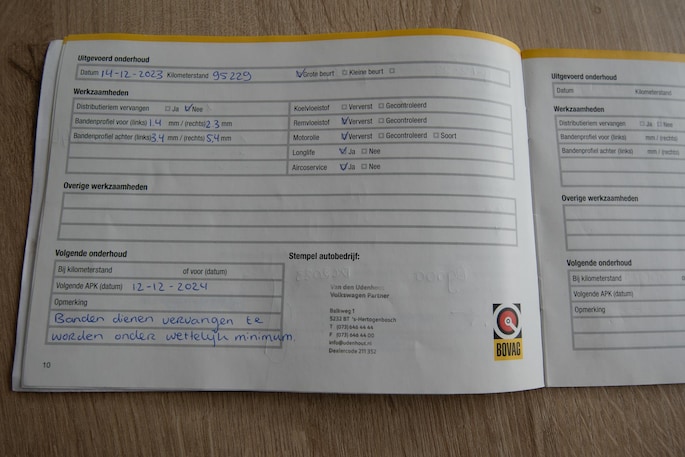 Uitgevoerd onderhoud
Datum 14-12-2023 Kilometerstand 95229 Grote beurt Kleine beurt
Werkzaamheden
Distributieriem vervangen Ja Nee
Bandenprofiel voor (links) 1.4 mm / (rechts) 2.3 mm
Bandenprofiel achter (links) 3.4 mm / (rechts) 5.4 mm
Koelvloeistof Ververst Gecontroleerd
Remvloeistof Ververst Gecontroleerd
Motorolie Ververst Gecontroleerd Soort
Longlife Ja Nee
Aircoservice Ja Nee
Overige werkzaamheden
Volgende onderhoud
Bij kilometerstand of voor (datum)
Volgende APK (datum) 12-12-2024
Opmerking
Banden dienen vervangen te
worden onder wettelijk minimum.
10
Stempel autobedrijf:
Van den Udenhout
Volkswagen Partner
Balkweg 1
5232 BT 's-Hertogenbosch
T (073) 646 44 44
F (073) 646 44 00
info@udenhout.nl
Dealercode 211 352
BOVAG
Uitgevoerd onderhoud
Datum Kilometerstand
Werkzaamheden
Distributieriem vervangen Ja Nee
Bandenprofiel voor (links) mm / (rechts)
Bandenprofiel achter (links) mm / (rechts)
Overige werkzaamheden
Volgende onderhoud
Bij kilometerstand of
Volgende APK (datum)
Opmerking